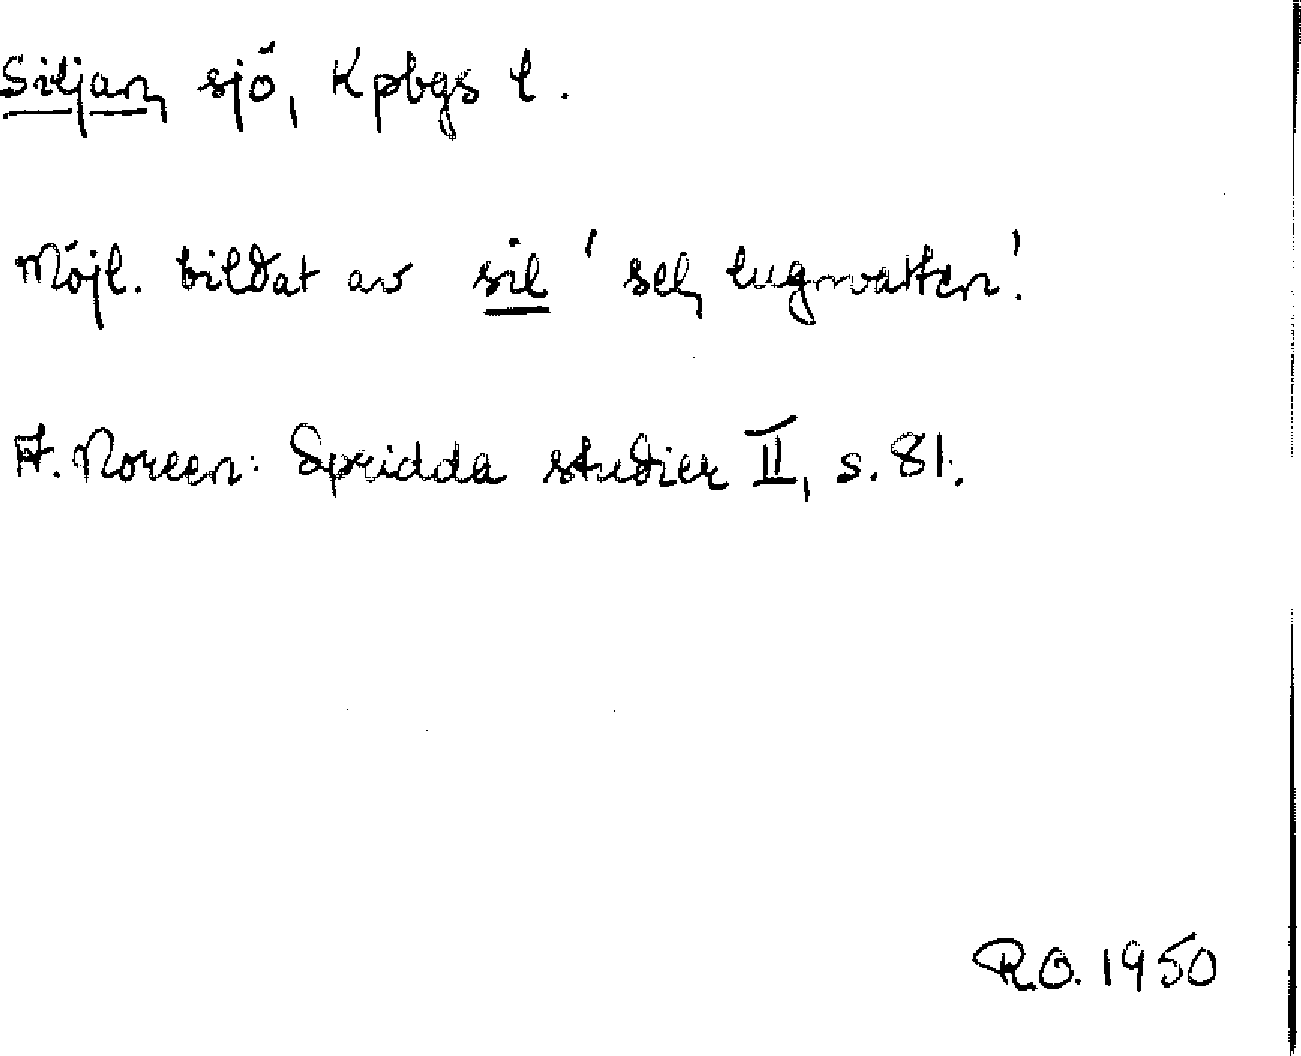 Siljan, sjö, Kpbgs l.
Möjl. bildat av sil 'sel, lugnvatten'.
A. Noreen: Spridda studier II, s. 81.
R.O. 1950